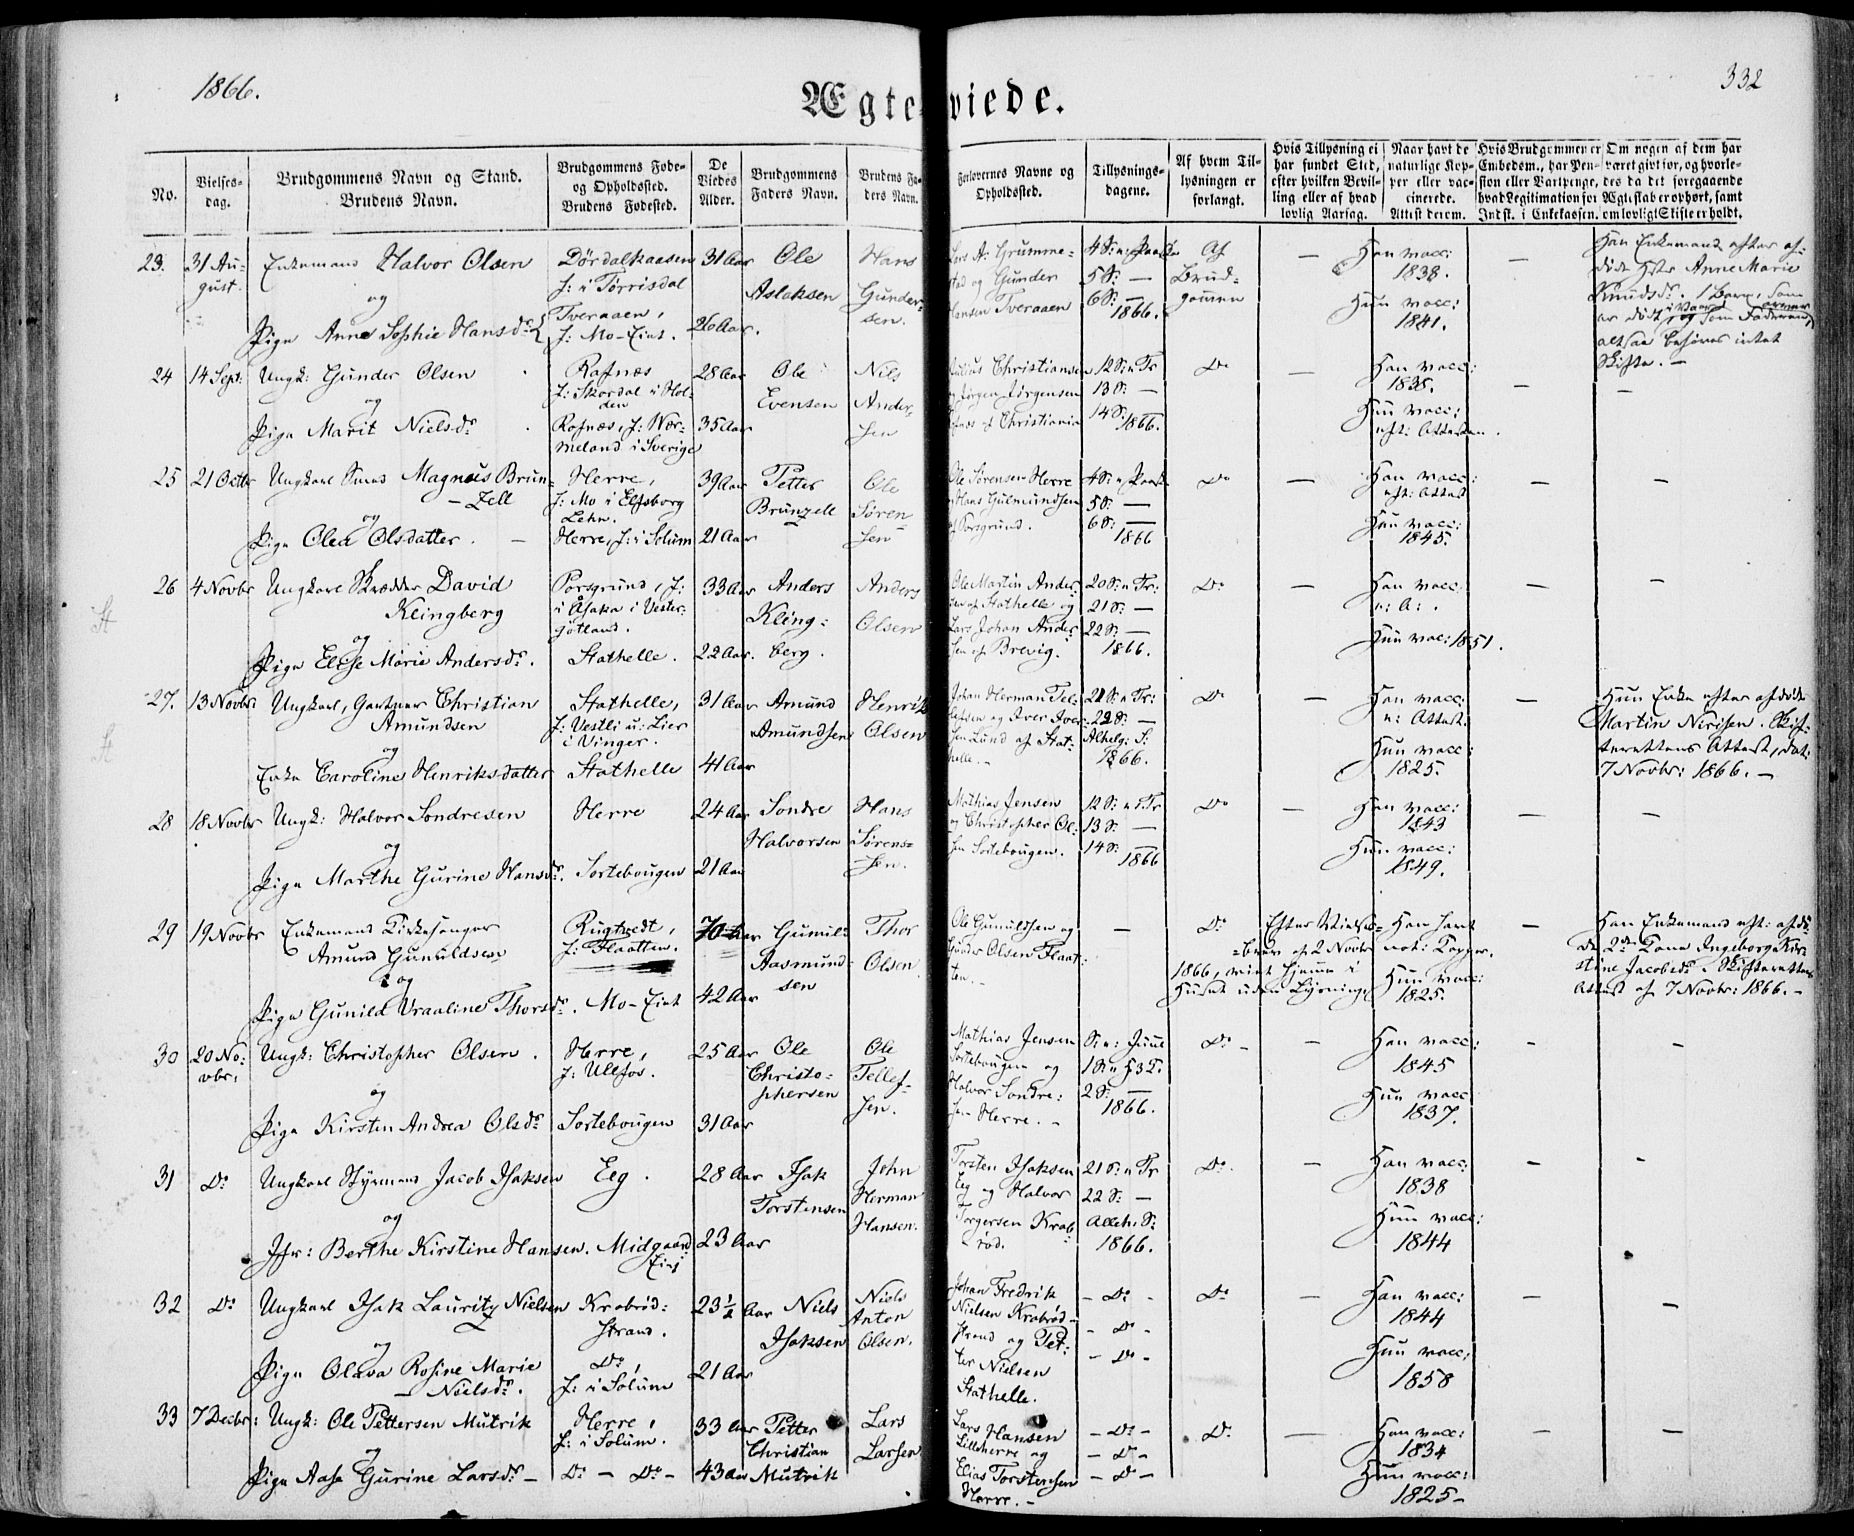 1866.
332
Ægteviede.
No.
Vielses-
dag.
Brudgommens Navn og Stand.
Brudens Navn.
Brudgommens Føde-
og Opholdssted.
Brudens Fødested.
De
Viedes
Alder.
Brudgommens
Faders Navn.
Brudens Fa-
ders Navn.
Forlovernes Navne og
Opholdssted.
Tillysnings-
dagene.
Af hvem Til-
lysningen er
forlangt.
Hvis Tillysning ei
har fundet Sted,
efter hvilken Bevil-
ling eller af hvad
lovlig Aarsag.
Naar havt de
naturlige Kop-
per eller vac-
cinerede.
Attest derom.
Hvis Brudgommen er
Embedsm., har Pen-
sion eller Vartpenge,
hvad Legitimation for
Indsk. i Enkekassen.
Om nogen af dem har
været gift før, og hvorle-
des da det foregaaende
Ægteskab er ophørt, samt
om lovligt Skifte er holdt.
23. 31 Au-
gust.
Enkemand Halvor Olsen
og
Pige Anne Sophie Hansdr.
Dørdalkaasen
f: i Tørrisdal
Tveraaen,
f: Mo-Eiet.
31 Aar
26 Aar.
Ole
Aslaksen
Hans
Gunder-
sen.
Lars A: Grumme-
stad og Gunder
Hansen Tveraaen
4 S: n: Paaske
5 S: —
6 S: —
1866.
Af
Brud-
gommen
—
Han vacc:
1838.
Hun vacc:
1841.
—
Han Enkemand efter af-
døde Hstr Anne Marie
Knudsdr. 1 Barn, som
altsaa behøves intet
Skifte. —
24 14 Sept: Ungk: Gunder Olsen
og
Pige Marit Nielsdr
Rafnæs
f: Skordal i Hol-
den
Rafnæs, f: Wær-
meland i Sverige
28 Aar
35 Aar
Ole
Evensen
Nils
Ander-
sen
Julius Christiansen
og Jørgen Jørgensen
Rafnæs af Christiania
12 S: n Tr
13 S: —
14 S:
1866.
Do
—
Han vacc:
1838.
Hun vacc:
eft: Attesten.
—
—
25 21 Octbr Ungkarl Smed Magnus Brun-
zell
og
Pige Olea Olsdatter.
Herre,
f: Mo i Elfsborg
Lehn.
Herre, f: i Solum
39 Aar
21 Aar
Petter
Brunzell
Ole
Søren-
sen
Ole Sørensen Herre
og Hans Gulmundsen
af Porsgrund.
4 S: n Paaske
5 S: —
6 S: —
1866
Do
—
Han vacc:
eft: Attest
Hun vacc:
1845.
—
—
26 4 Novbr Ungkarl Skrædder David
Klingberg
og
Pige Elise Marie Andersdr.
Porsgrund, f:
i Åsaka i Vester-
götland.
Stathelle.
33 Aar
22 Aar.
Anders
Kling-
berg.
Anders
Olsen
Ole Martin Ander-
sen af Stathelle og
Lars Johan Ander-
sen af Brevig.
20 S: n Tr:
21 S: —
22 S: —
1866.
Do
—
Han vacc:
n: A:.
Hun vac: 1851.
—
—
27. 13 Novbr: Ungkarl, Gartner Christian
Amundsen
og
Enke Caroline Henriksdatter
Stathelle,
f: Vestli u: Lier
i Vinger.
Stathelle
31 Aar
41 Aar
Amund
Amundsen
Henrik
Olsen
Johan Herman Tel-
lefsen og Iver Iver-
sen Lund af Stat-
helle. —
21 S: n Tr:
22 S: —
Alhelg: S:
1866.
Do
—
Han vacc:
n: Attest.
Hun vacc:
1825.
—
Hun Enke efter afdøde
Martin Nirisen. Skif-
terettens Attest, dat:
7 Novbr: 1866. —
28 18 Novbr Ungk: Halvor Sondresen
og
Pige Marthe Gurine Hansdr.
Herre
Sortebougen
24 Aar
21 Aar
Sondre
Halvorsen
Hans
Sørens-
sen.
Mathias Jensen
og Christopher Ol-
sen Sortebougen.
12 S: n Tr
13 S: —
14 S:
1866
Do
—
Han vacc:
1843
Hun vacc:
1849.
—
—
29 19 Novbr Enkemand Kirkesanger
Amund Gunuldsen
og
Pige Gunild Vraaline Thorsdr.
Rugtvedt,
f: Flaatten.
Mo-Eiet
70 Aar
42 Aar
Gunul-
Aasmund-
sen
Thor
Olsen
Ole Gunuldsen og
Gunder Olsen Flaat-
ten. —
—
Do
Efter Vielses-
brev af 2 Novbr
1866, viet hjemme i
Huset uden Lysning
Han havt
nat: Kopper.
Hun vacc:
1825.
—
Han Enkemand eft: afdø-
de 2den Kone Ingeborg Kir-
stine Jacobsdr. Skifterettens
Attest af 7 Novbr: 1866. —
30 20 No-
vbr:
Ungk: Christopher Olsen.
og
Pige Kirsten Andrea Olsdr
Herre,
f: Ullfos.
Sortebougen
25 Aar
31 Aar
Ole
Christo-
phersen
Ole
Tellef-
sen.
Mathias Jensen
Sortebougen og
Halvor Sondre-
sen Herre. —
S: n: Juul
1 S: n H3K:
2 S: —
1866.
Do —
—
Han vacc:
1845
Hun vacc:
1837.
—
—
31 Do
Ungkarl Styrmand Jacob Isaksen
og
Jfr: Berthe Kirstine Hansen.
Eeg.
Midgaard
Eiet
28 Aar
23 Aar
Isak
Torstensen
John
Herman
Hansen.
Torsten Isaksen
Eeg og Halvor
Torgersen Krab-
rød.
21 S: n Tr
22 S: —
Alleh. S:
1866.
Do.
—
Han vacc:
1838
Hun vacc:
1844
—
—
32 Do
Ungkarl Isak Lauritz Nielsen
og
Pige Olava Rosine Marie
Nielsdr.
Krabrød-
strand.
Do,
f: i Solum
23 ½ Aar
21 Aar
Niels
Isaksen
Niels
Anton
Olsen.
Johan Fredrik
Nielsen Krabrød-
strand og Pet-
ter Nielsen
Stathelle.
— Do —
— Do —
— Do —
Do
—
Han vacc:
1844
Hun vacc:
1858
—
—
33 7 Decbr: Ungk: Ole Pettersen Mutrik
og
Pige Aase Gurine Larsdr —
Herre,
f: i Solum.
Do — Do —
33 Aar
43 Aar
Petter
Christian
Mutrik
Lars
Larsen
Lars Hansen
Lilleherre og
Elias Torstensen
Herre. —
— Do —
— Do —
— Do —
Do.
—
Han vacc:
1834
Hun vacc:
1825 —
—
—
St
St